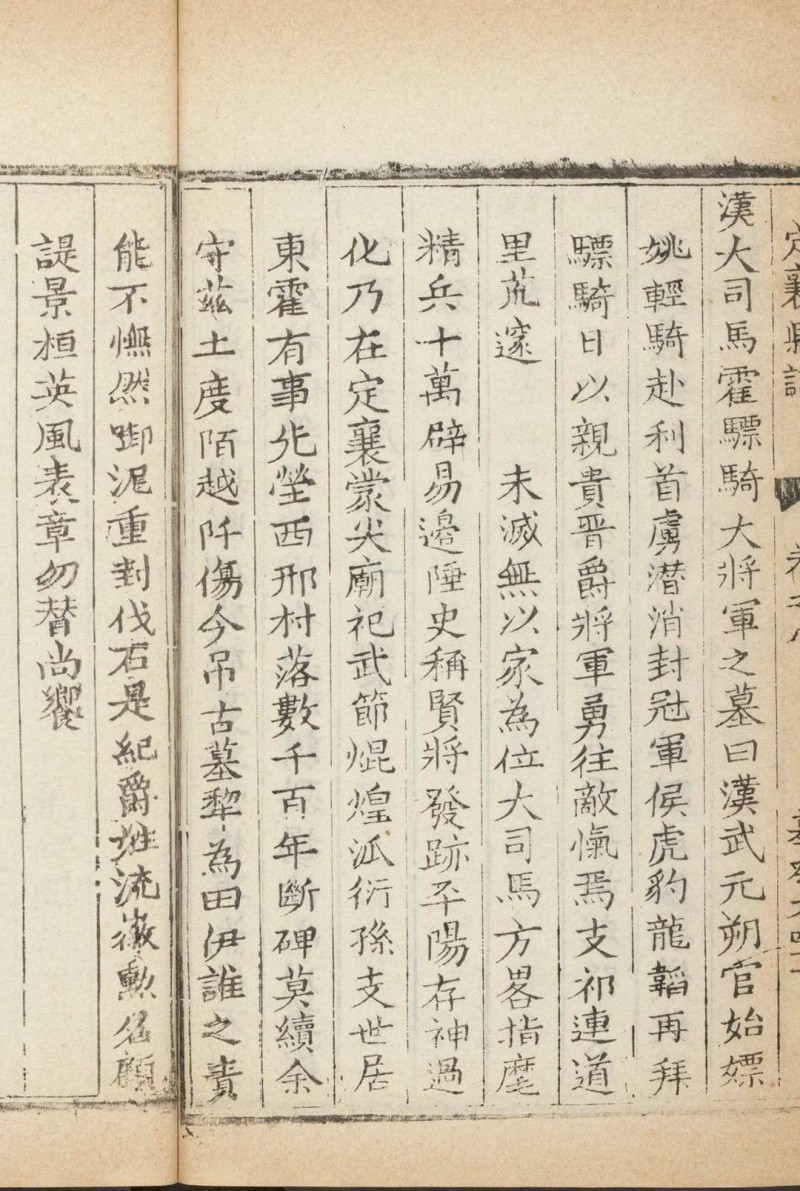 定襄縣誌 卷之八
漢大司馬霍驃騎大將軍之墓曰漢武元朔官始嫖
姚輕騎赴利首虜潛消封冠軍侯虎豹龍韜再拜
驃騎日以親貴晋爵將軍勇往敵愾焉支祁連道
里荒邃 未滅無以家為位大司馬方畧指麾
精兵十萬辟易邉陲史稱賢將發跡平陽存神過
化乃在定襄蒙尖廟祀武節焜煌泒衍孫支世居
東霍有事先塋西邢村落數千百年斷碑莫續余
守茲土度陌越阡傷今吊古墓犂為田伊誰之責
能不憮然卿泥重封伐石是紀爵姓流徽勲名顧
諟景桓英風表章勿替尚饗